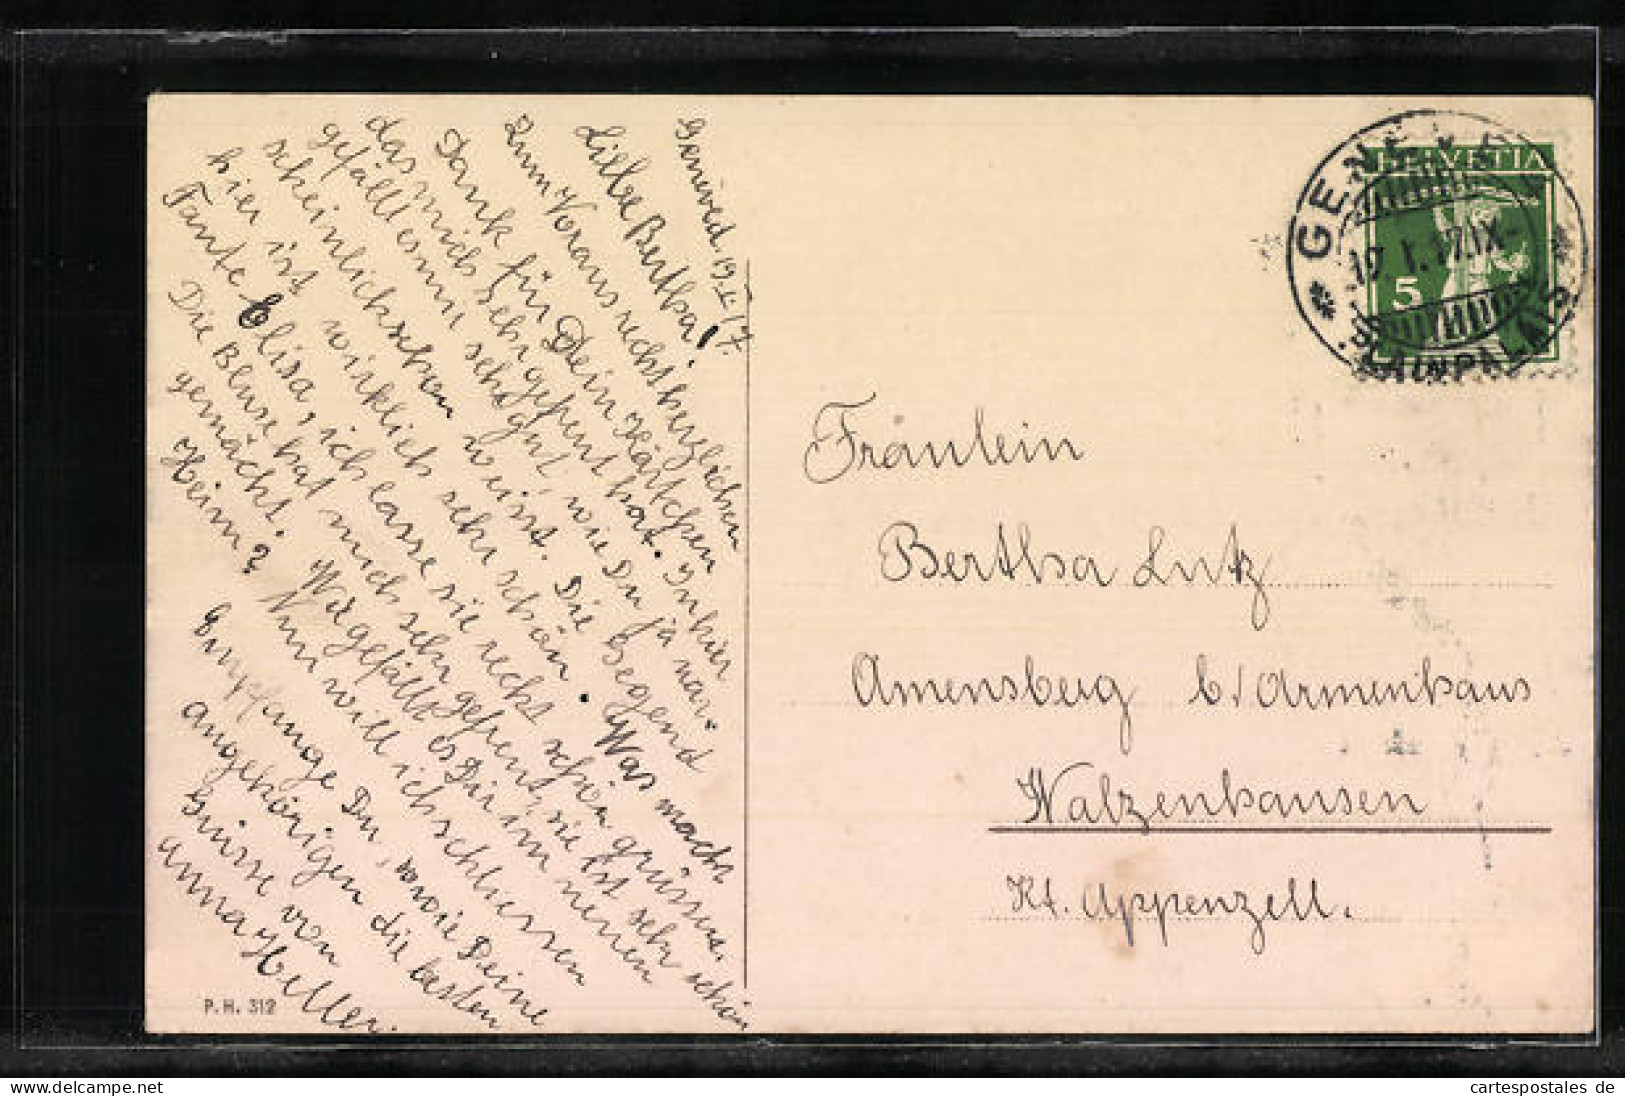 Liebe Bertha!
Zum Voraus recht herzlichen
Dank für Dein Kärtchen
das mich sehr gefreut hat. In hier
gefällt es mir sehr gut, wie Du ja war-
scheinlich schon weisst. Die Gegend
hier ist wirklich sehr schön. Was macht
Tante Elisa, ich lasse sie recht schön grüssen.
Die Bluse hat mich sehr gefreut, sie ist sehr schön
gemacht. Wie gefällt es Dir im neuen
Heim? Nun will ich schliessen
Empfange Du, wie Deine
angehörigen die besten
Grüsse von
Anna Heller.
P. H. 312
HELVETIA
5
GENÈVE
PLAINPALAIS
Fräulein
Bertha Lutz
Amensberg b/Armenhaus
Walzenhausen
Kt. Appenzell.
cartespostales de